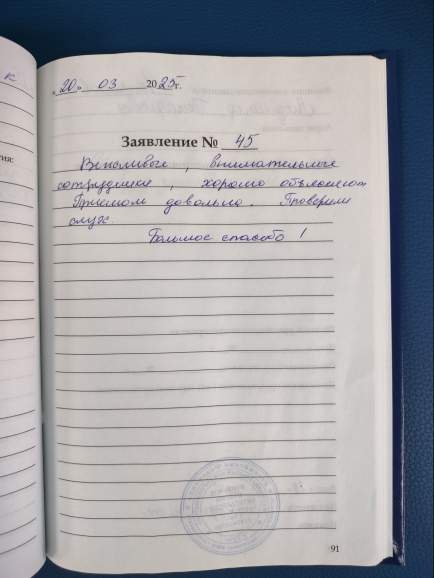 к
"20" 03 2025г.
Заявление № 45
Вежливые, внимательные
сотрудники, хорошо объясняют
Приемом довольна. Проверили
слух.
Большое спасибо!
91